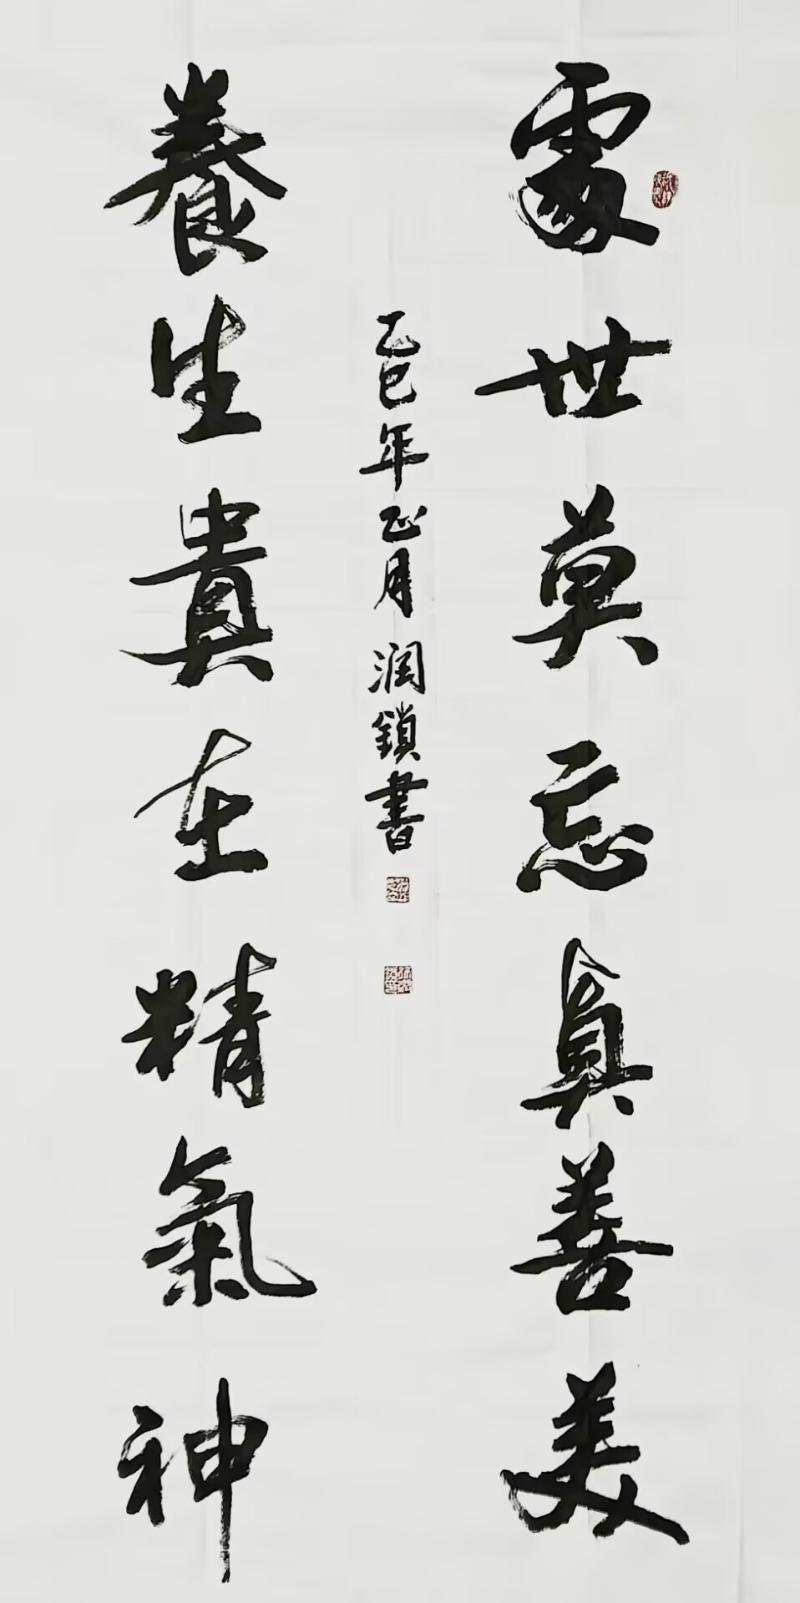 處世莫忘真善美
乙巳年正月潤鎖書
養生貴在精氣神